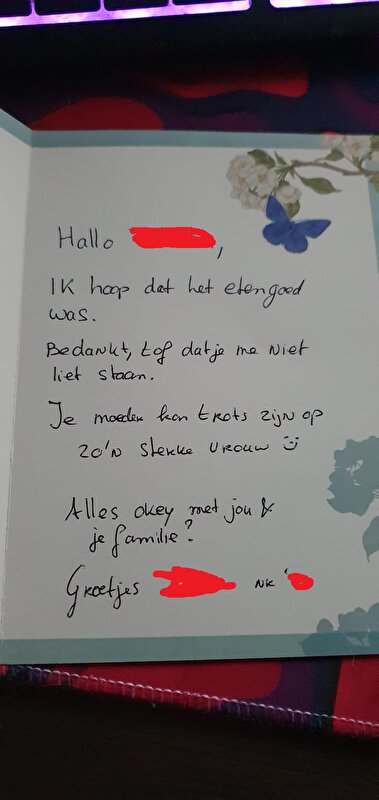 Hallo ,
IK hoop dat het eten goed
was.
Bedankt, tof dat je me niet
liet staan.
Je moeder kan trots zijn op
zo'n sterke vrouw :)
Alles okey met jou &
je familie?
Groetjes NK '